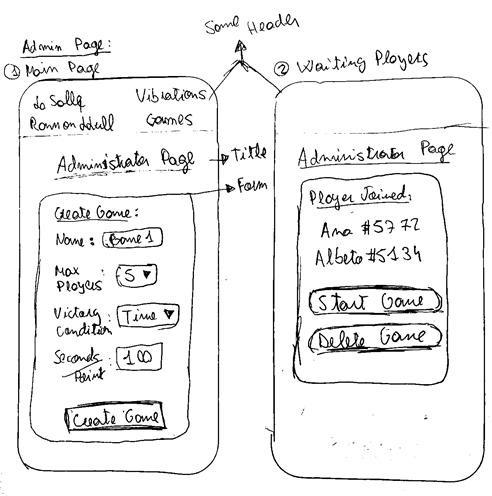 Admin Page:
① Main Page
Some Header
② Waiting Players
La Salle
Ramon Llull
Vibrations
Games
Administrator Page
Title
Form
Create Game:
Name: Game 1
Max Players: 5 ▼
Victory Condition: Time ▼
Seconds/Point: 100
Create Game
Administrator Page
Player Joined:
Ana #5772
Albeto #5134
Start Game
Delete Game